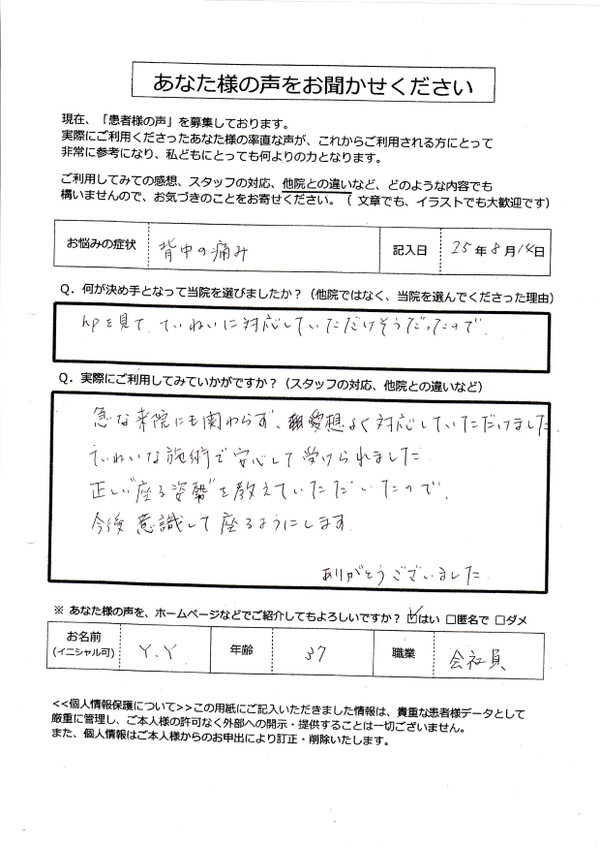 あなた様の声をお聞かせください
現在、「患者様の声」を募集しております。
実際にご利用くださったあなた様の率直な声が、これからご利用される方にとって
非常に参考になり、私どもにとっても何よりの力となります。
ご利用してみての感想、スタッフの対応、他院との違いなど、どのような内容でも
構いませんので、お気づきのことをお寄せください。（ 文章でも、イラストでも大歓迎です）
お悩みの症状 背中の痛み 記入日 25年8月14日
Q．何が決め手となって当院を選びましたか？（他院ではなく、当院を選んでくださった理由）
hpを見て、ていねいに対応していただけそうだったので
Q．実際にご利用してみていかがですか？（スタッフの対応、他院との違いなど）
急な来院にも関わらず、愛想よく対応していただけました
ていねいな施術で安心して受けられました
正しい"座る姿勢"を教えていただいたので、
今後意識して座るようにします
ありがとうございました
※ あなた様の声を、ホームページなどでご紹介してもよろしいですか？ ☑はい □匿名で □ダメ
お名前 Y.Y 年齢 37 職業 会社員
(イニシャル可)
<<個人情報保護について>>この用紙にご記入いただきました情報は、貴重な患者様データとして
厳重に管理し、ご本人様の許可なく外部への開示・提供することは一切ございません。
また、個人情報はご本人様からのお申出により訂正・削除いたします。